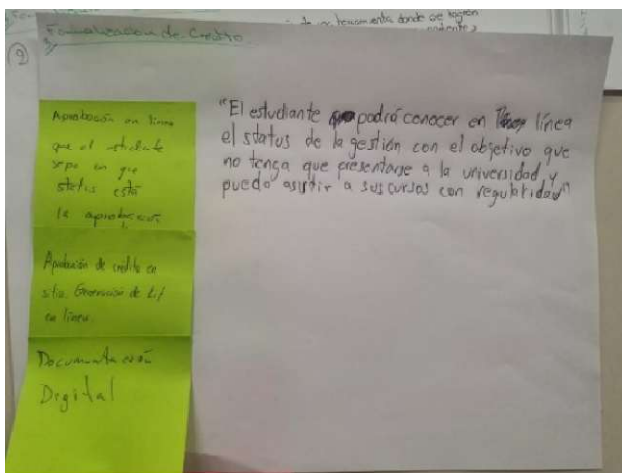 de una herramienta donde se
②
Formalización de Crédito
Aprobación en línea
que el estudiante
sepa en que
status está
la aprobación
Aprobación de crédito en
sitio. Generación de
en línea.
Documentación
Digital
"El estudiante podrá conocer en línea
el status de la gestión con el objetivo que
no tenga que presentarse a la universidad y
pueda asistir a sus cursos con regularidad"